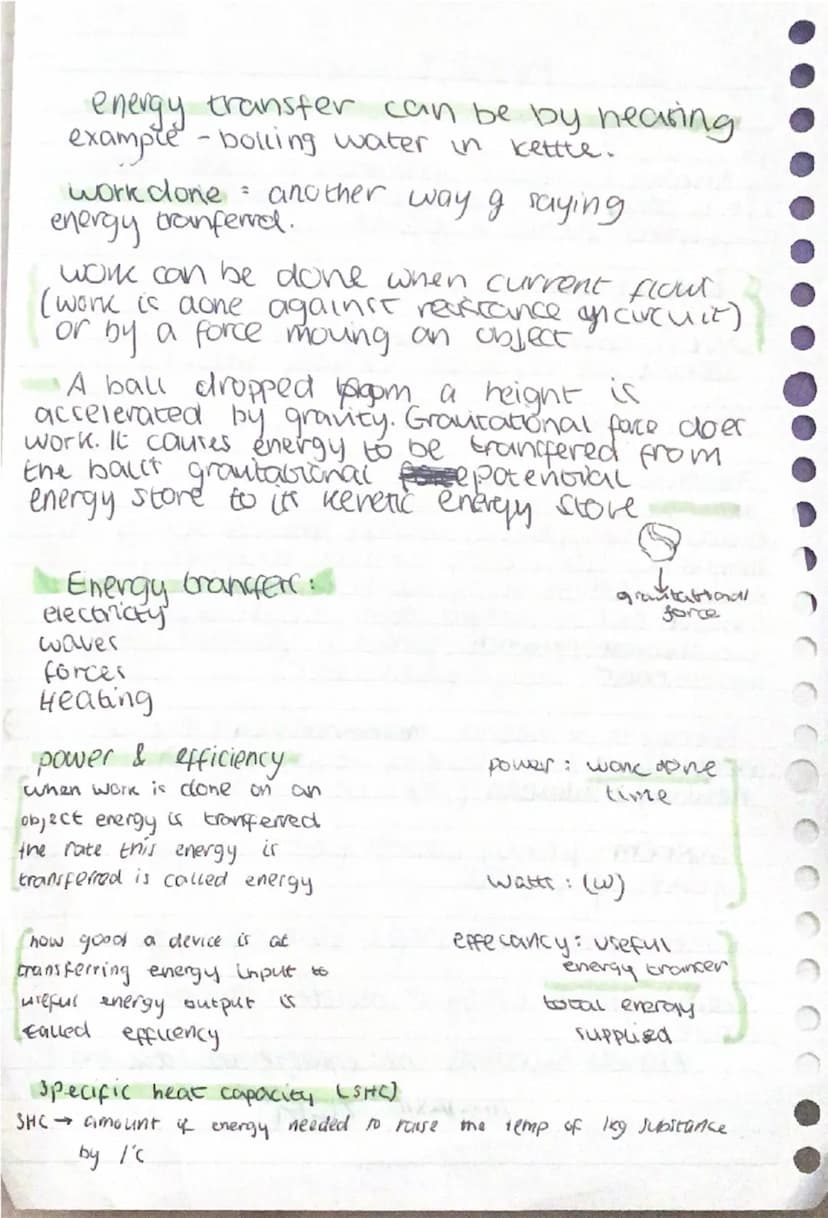 energy transfer can be by hearing
example - boiling water in kettle.
work done = another way of saying
energy tranferred.
work can be done when current flows
(work is done against resistance in circuit)
or by a force moving an object
A ball dropped from a height is
accelerated by gravity. Gravitational force does
work. It causes energy to be transfered from
the ball's gravitational potential
energy store to its kenetic energy store
gravitational
force
Energy transfers:
electricity
waves
forces
Heating
power & efficiency
when work is done on an
object energy is transferred
the rate this energy is
transferred is called energy
power: work done
time
Watts: (W)
how good a device is at
transferring energy input to
useful energy output is
called effiency
effecancy: useful
energy trancer
total energy
supplied
specific heat capacity (SHC)
SHC → amount of energy needed to raise the temp of 1kg substance
by 1°c